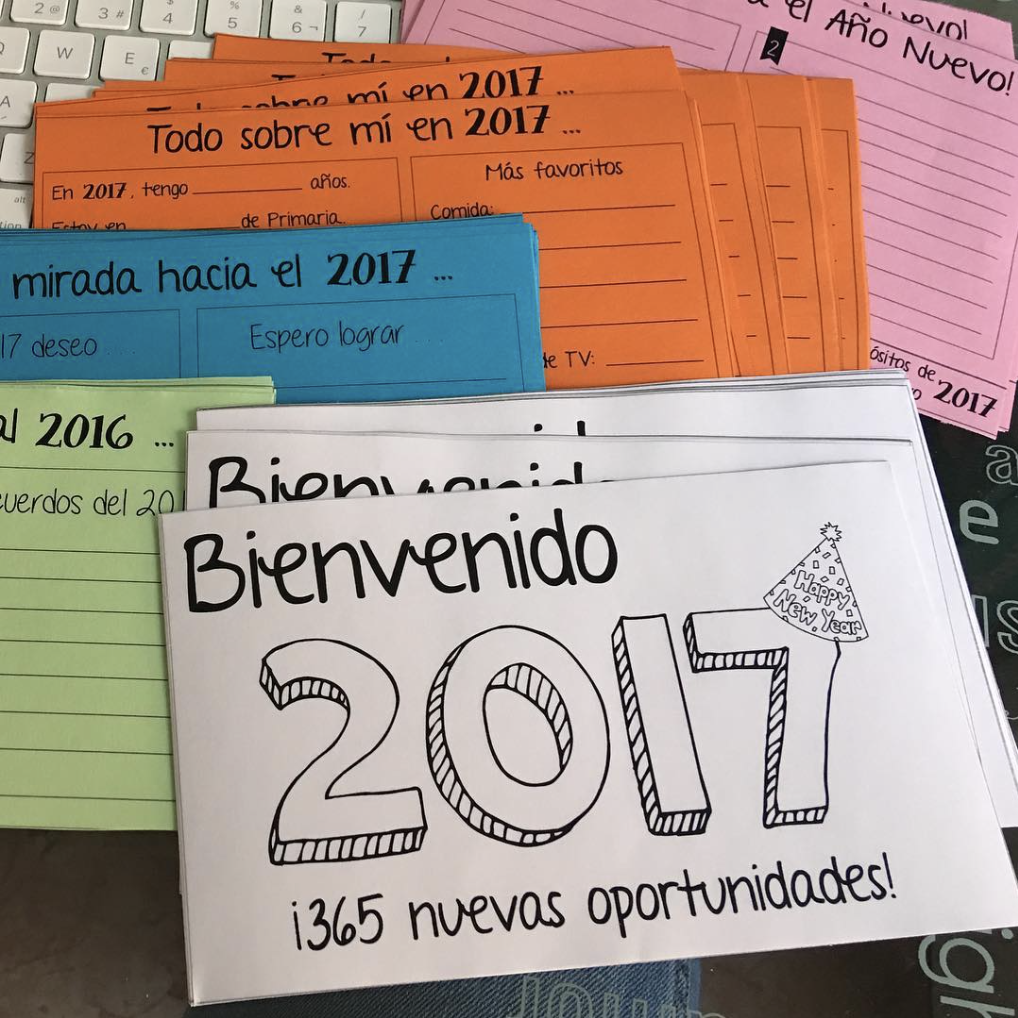 2 @
3 #
$
4
%
5
&
6
/
7
W
E
€
A
Z
alt
Nuevo!
a el Año Nuevo!
2
Todo
Todo sobre mí en 2017 ...
Todo sobre mí en 2017 ...
En 2017, tengo ________ años.
Estoy en ________ de Primaria.
Más favoritos
Comida:
de TV:
ósitos de
2017
mirada hacia el 2017 ...
17 deseo
Espero lograr
al 2016 ...
cuerdos del 20
Bienvenido
Bienvenido
2017
Happy
New Year
¡365 nuevas oportunidades!